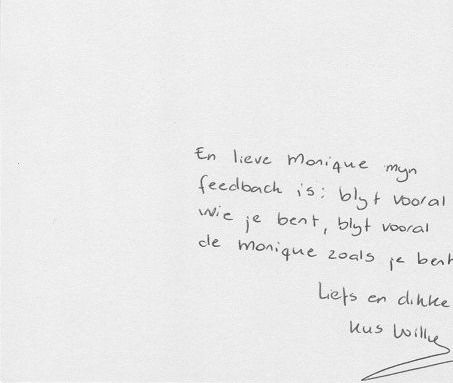 En lieve Monique myn
feedback is: blyt vooral
wie je bent, blyt vooral
de Monique zoals je bent
Liefs en dikke
kus Willy